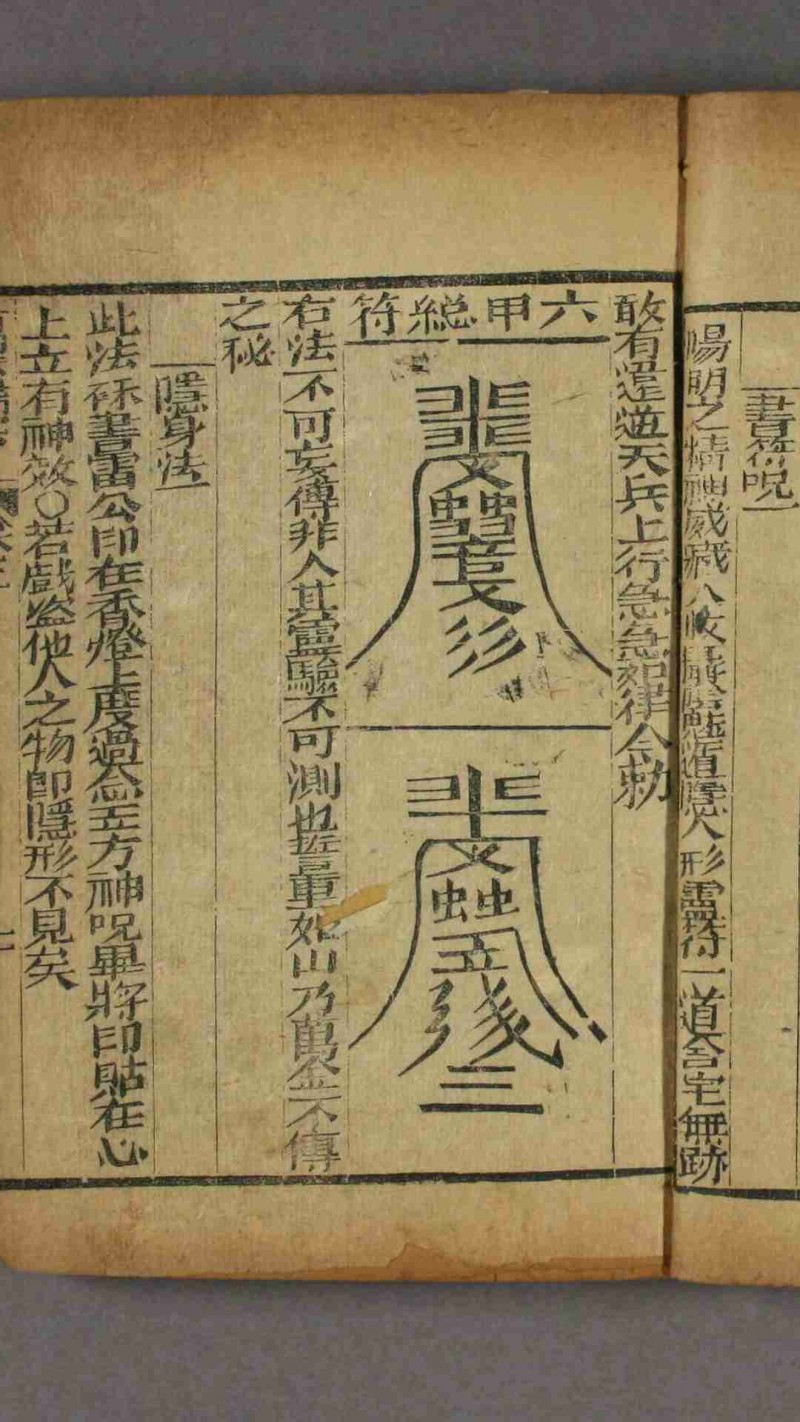 書符呪
陽明之精神威藏八收𠩄遁隱人形靈符一道舍宅無跡
敢有違逆天兵上行急急如律令勅
六甲總符
右法不可妄傳非人其靈驗不可測也誓重如山乃萬金不傳
之秘
隱身法
此法秪書雷公印在香燈上度過念五方神呪畢將印貼在心
上立有神效○若戲盜他人之物即隱形不見矣